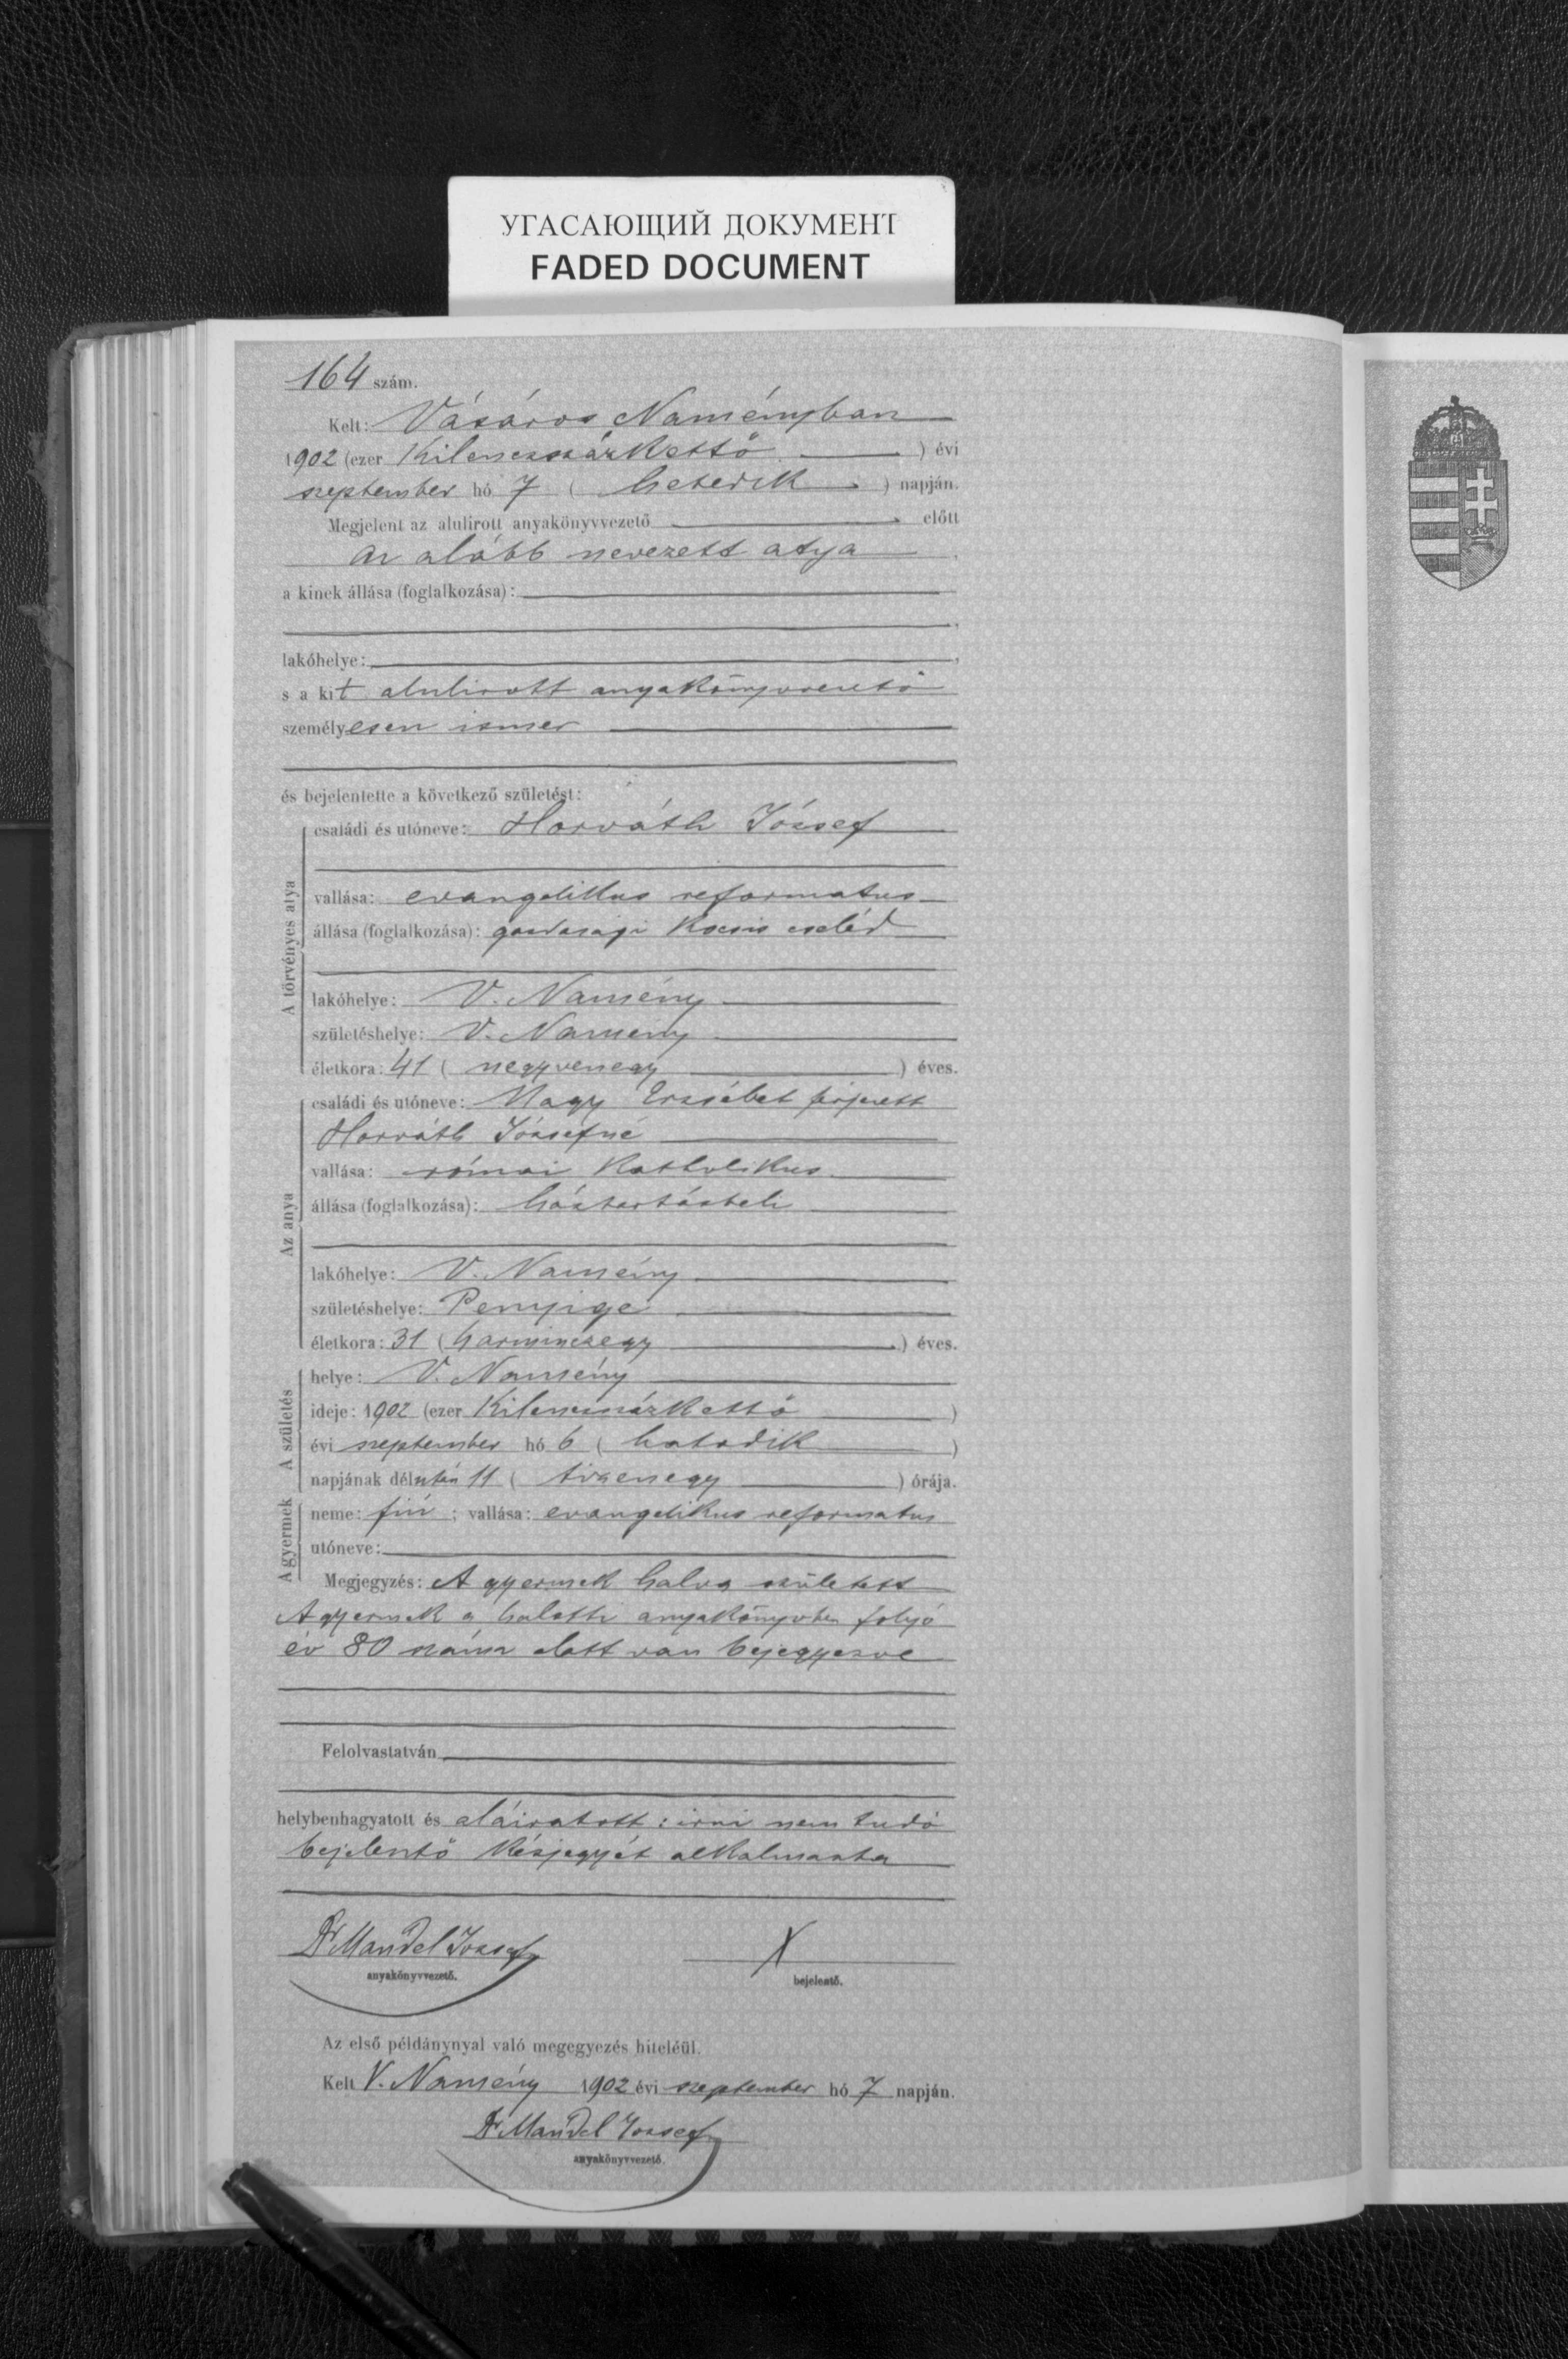 УГАСАЮЩИЙ ДОКУМЕНТ
FADED DOCUMENT
164 szám.
Kelt: Vásáros Naményban
1902 (ezer Kilenczszázkettő) évi
szeptember hó 7 (hetedik) napján.
Megjelent az alulirott anyakönyvvezető előtt
az alább nevezett atya
a kinek állása (foglalkozása):
lakóhelye:
s a kit alulirott anyakönyvvezető
személyesen ismer
és bejelentette a következő születést:
A törvényes atya
családi és utóneve: Horváth József
vallása: evangelikus reformatus
állása (foglalkozása): gazdasági kocsis cseléd
lakóhelye: V. Namény
születéshelye: V. Namény
életkora: 41 (negyvenegy) éves.
Az anya
családi és utóneve: Nagy Erzsébet férjezett
Horváth Józsefné
vallása: római katholikus
állása (foglalkozása): háztartásbeli
lakóhelye: V. Namény
születéshelye: Penyige
életkora: 31 (harminczegy) éves.
A születés
helye: V. Namény
ideje: 1902 (ezer Kilenczszázkettő)
évi szeptember hó 6 (hatodik)
napjának délután 11 (tizenegy) órája.
A gyermek
neme: fiú; vallása: evangelikus reformatus
utóneve:
Megjegyzés: A gyermek halva született
A gyermek a halotti anyakönyvben folyó
év 80 szám alatt van bejegyezve
Felolvastatván
helybenhagyatott és aláiratott: irni nem tudó
bejelentő kézjegyét alkalmazta
Dr Mandel József
X
anyakönyvvezető.
bejelentő.
Az első példánynyal való megegyezés hiteléül.
Kelt V. Namény 1902 évi szeptember hó 7 napján.
Dr Mandel József
anyakönyvvezető.